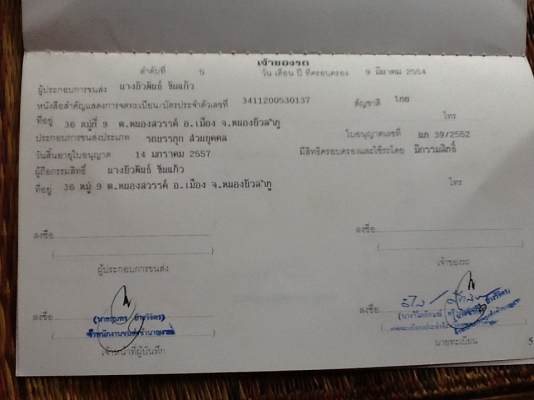 เจ้าของรถ
ลำดับที่ 5 วัน เดือน ปี ที่ครอบครอง 9 มีนาคม 2554
ผู้ประกอบการขนส่ง
หนังสือสำคัญแสดงการจดทะเบียน/บัตรประจำตัวเลขที่ 3411200530137 สัญชาติ ไทย
ที่อยู่ 36 หมู่ที่ 9 ต.หนองสวรรค์ อ.เมือง จ.หนองบัวลำภู โทร
ประกอบการขนส่งประเภท รถบรรทุก ส่วนบุคคล ใบอนุญาตเลขที่ 39/2552
วันสิ้นอายุใบอนุญาต 14 มกราคม 2557 มีสิทธิครอบครองและใช้รถโดย มีกรรมสิทธิ์
ผู้ถือกรรมสิทธิ์
ที่อยู่ 36 หมู่ 9 ต.หนองสวรรค์ อ.เมือง จ.หนองบัวลำภู โทร
ลงชื่อ ลงชื่อ
ผู้ประกอบการขนส่ง เจ้าของรถ
ลงชื่อ ลงชื่อ
เจ้าหน้าที่ผู้บันทึก นายทะเบียน
5